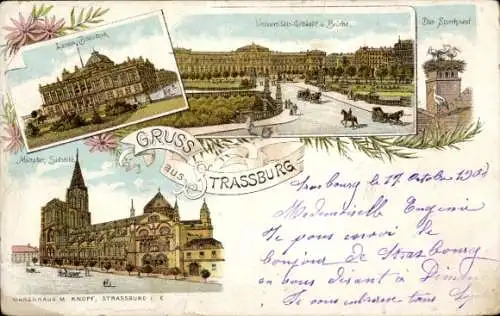 Universitäts-Gebäude u. Brücke.
Das Storknest
GRUSS
aus
STRASSBURG
Münster, Südseite
Strasbourg le 17 Octobre 190
Mademoiselle Eugenie
Je vous envoie le
bonjour de Strasbourg
en vous disant à
Je vous embrasse
WARENHAUS M. KNOPF, STRASSBURG I. E.